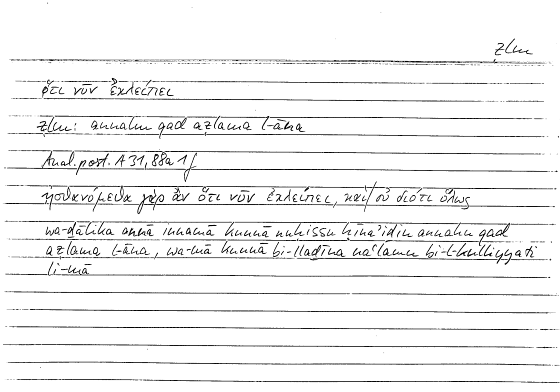 ẓlm
ὅτι νῦν ἐκλείπει
ẓlm: annahu qad aẓlama l-āna
Anal. post. A 31, 88a 1 f
ᾐσθανόμεθα γὰρ ἂν ὅτι νῦν ἐκλείπει, καὶ οὐ διότι ὅλως
wa-ḏālika annā innamā kunnā nuḥissu ḥīna'iḏin annahu qad
aẓlama l-āna, wa-mā kunnā bi-lladīna na'lamu bi-l-kulliyyati
li-mā